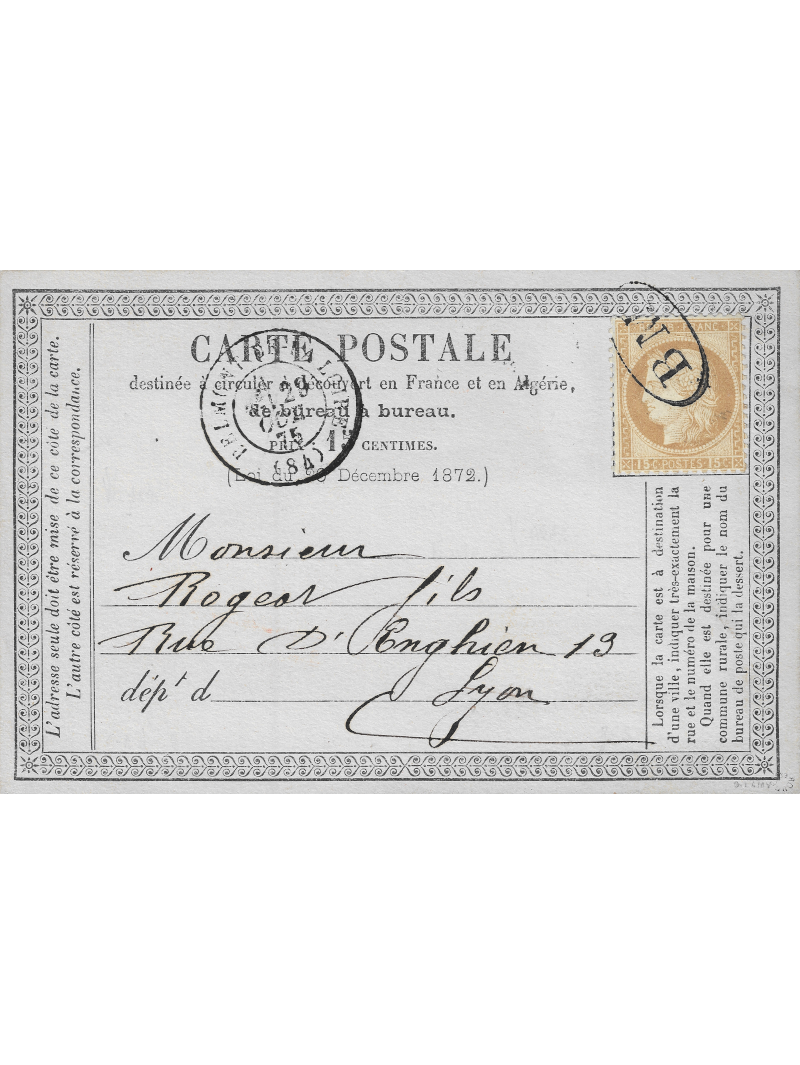 CARTE POSTALE
destinée à circuler à découvert en France et en Algérie,
de bureau à bureau.
PRIX 15 CENTIMES.
(Loi du 20 Décembre 1872.)
BELMONT LOIRE
29
75
(84)
BM
FRANC
15 C POSTES 15 C
Monsieur
Rogeat fils
Rue D'Enghien 19
dépt d Lyon
L'adresse seule doit être mise de ce côté de la carte.
L'autre côté est réservé à la correspondance.
Lorsque la carte est à destination
d'une ville, indiquer très-exactement la
rue et le numéro de la maison.
Quand elle est destinée pour une
commune rurale, indiquer le nom du
bureau de poste qui la dessert.